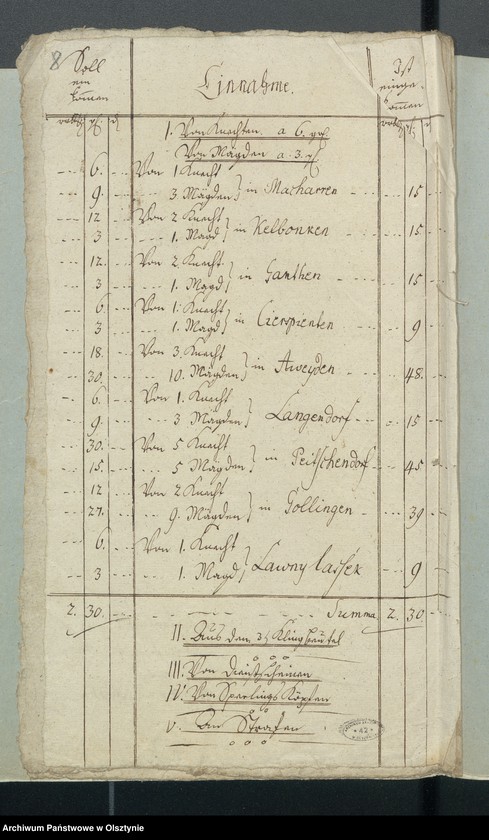 8 Soll
ein
kommen
Einnahme.
Ist
einge-
kommen
I. Von Knechten a 6. gr
Von Mägden a 3. gr
6. Von 1 Knecht
9. 3 Mägden } in Macharren 15
12 Von 2 Knecht
3 1. Magd } in Kelbonken 15
12. Von 2 Knecht
3 1. Magd } in Ganthen 15
6. Von 1. Knecht
3 1. Magd } in Cierspienten 9
18. Von 3. Knecht
30. 10. Mägden } in Aweyden 48.
6. Von 1. Knecht
9. 3 Mägden } Langendorf 15
30. Von 5 Knecht
15. 5 Mägden } in Peitschendorf 45
12 Von 2 Knecht
27. 9. Mägden } in Gollingen 39
6. Von 1. Knecht
3 1. Magd } Lawny Lassek 9
2. 30. Summa 2. 30
II. Aus dem Klingbeutel
III. Von
IV. Von Sperlings Köpfen
V. An Strafen
Archiwum Państwowe w Olsztynie